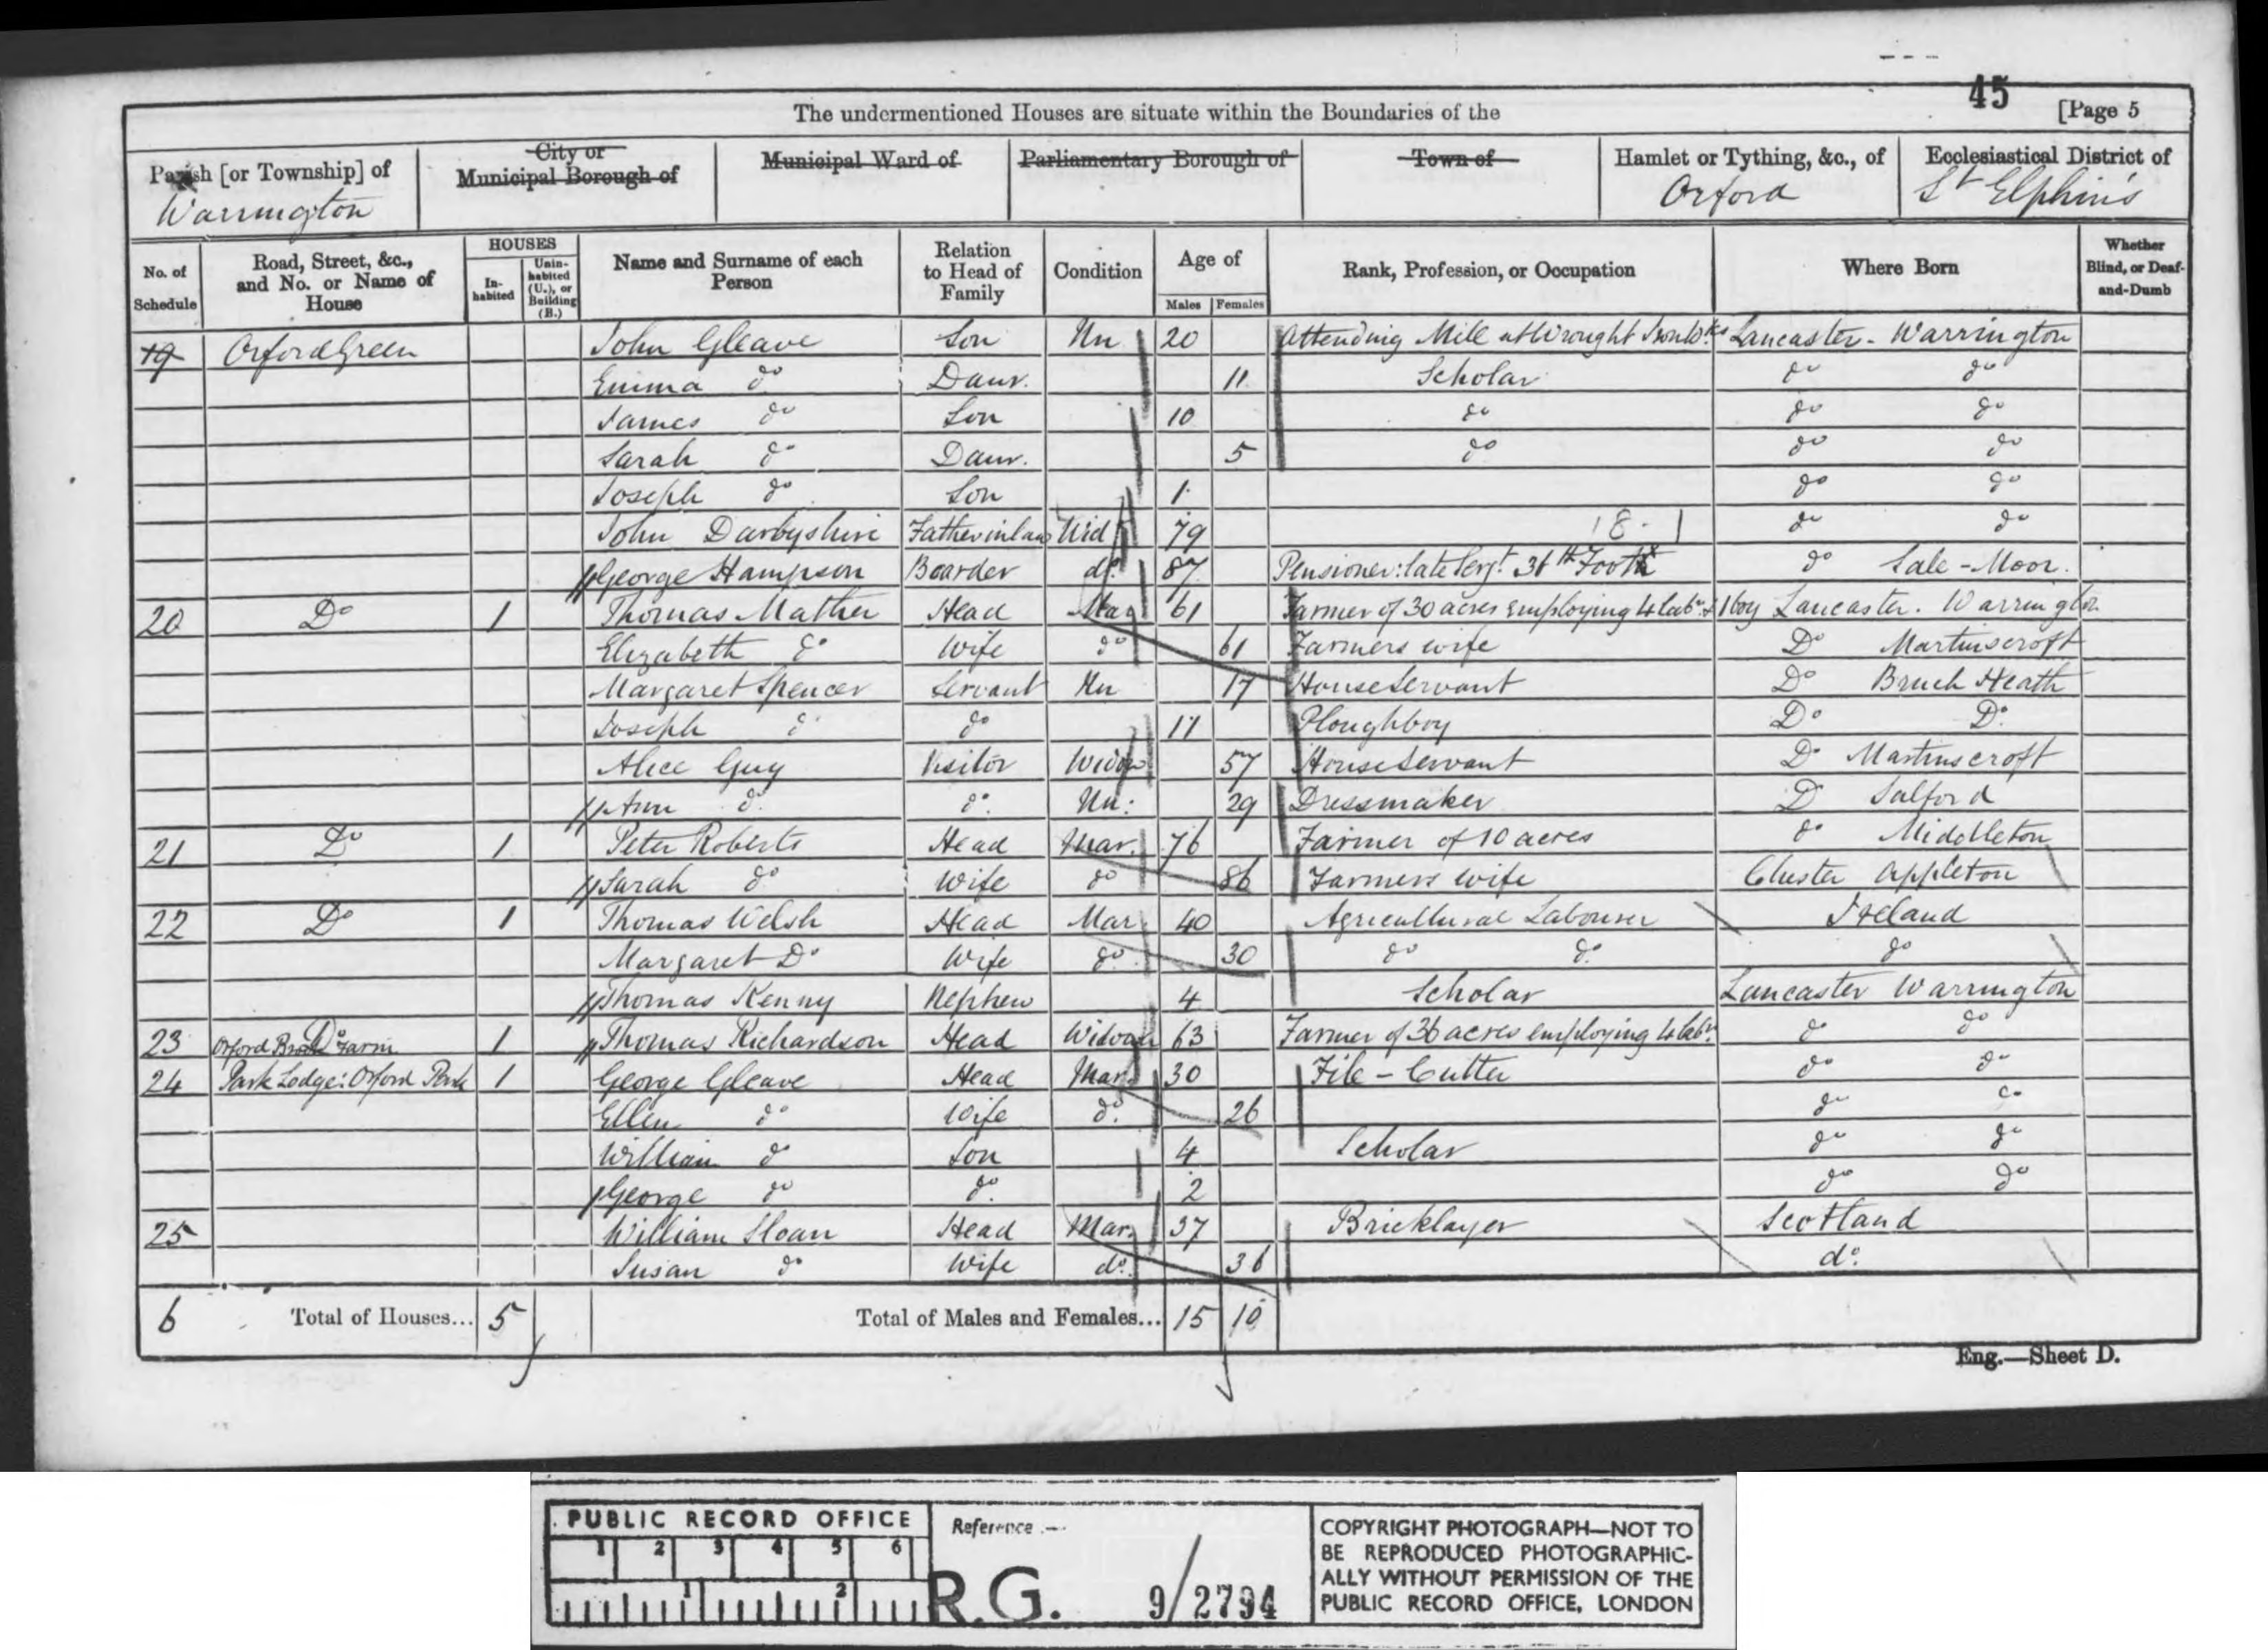 45
The undermentioned Houses are situate within the Boundaries of the [Page 5
Parish [or Township] of City or Municipal Borough of Municipal Ward of Parliamentary Borough of Town of Hamlet or Tything, &c., of Ecclesiastical District of
Warrington Orford St Elphin's
No. of Schedule Road, Street, &c., and No. or Name of House HOUSES Inhabited Uninhabited (U.), or Building (B.) Name and Surname of each Person Relation to Head of Family Condition Age of Males Females Rank, Profession, or Occupation Where Born Whether Blind, or Deaf-and-Dumb
19 Orford Green John Gleave Son Un 20 Attending Mill at Wrought Lancaster - Warrington
Emma do Daur. 11 Scholar do do
James do Son 10 do do do
Sarah do Daur. 5 do do do
Joseph do Son 1 do do
John Darbyshire Father in law Wid 79 do do
George Hampson Boarder do 87 Pensioner: late Sergt. 36th Foot do Sale-Moor.
20 Do 1 Thomas Mather Head Mar 61 Farmer of 30 acres employing 4 labrs & 1 boy Lancaster. Warrington
Elizabeth do Wife do 61 Farmers wife Do Martinscroft
Margaret Spencer Servant Un 17 House Servant Do Bruch Heath
Joseph do do 11 Ploughboy Do Do
Alice Guy Visitor Widow 57 House Servant Do Martinscroft
Ann do do Un: 29 Dressmaker Do Salford
21 Do 1 Peter Roberts Head Mar. 76 Farmer of 10 acres do Middleton
Sarah do Wife do 86 Farmers wife Chester Appleton
22 Do 1 Thomas Welsh Head Mar 40 Agricultural Labourer Ireland
Margaret Do Wife do 30 do do do
Thomas Kenny Nephew 4 Scholar Lancaster Warrington
23 Do Orford Farm 1 Thomas Richardson Head 63 Farmer of 36 acres employing 4 labrs do do
24 Park Lodge: Orford Park 1 George Gleave Head Mar. 30 File-Cutter do do
Ellen do Wife do. 26 do do
William do Son 4 Scholar do do
George do do. 2 do do
25 William Sloan Head Mar. 37 Bricklayer Scotland
Susan do Wife do. 36 do.
6 Total of Houses... 5 Total of Males and Females... 15 10
Eng.—Sheet D.
PUBLIC RECORD OFFICE Reference :—
1 2 3 4 5 6
1 2
R.G. 9/2794
COPYRIGHT PHOTOGRAPH—NOT TO
BE REPRODUCED PHOTOGRAPHIC-
ALLY WITHOUT PERMISSION OF THE
PUBLIC RECORD OFFICE, LONDON